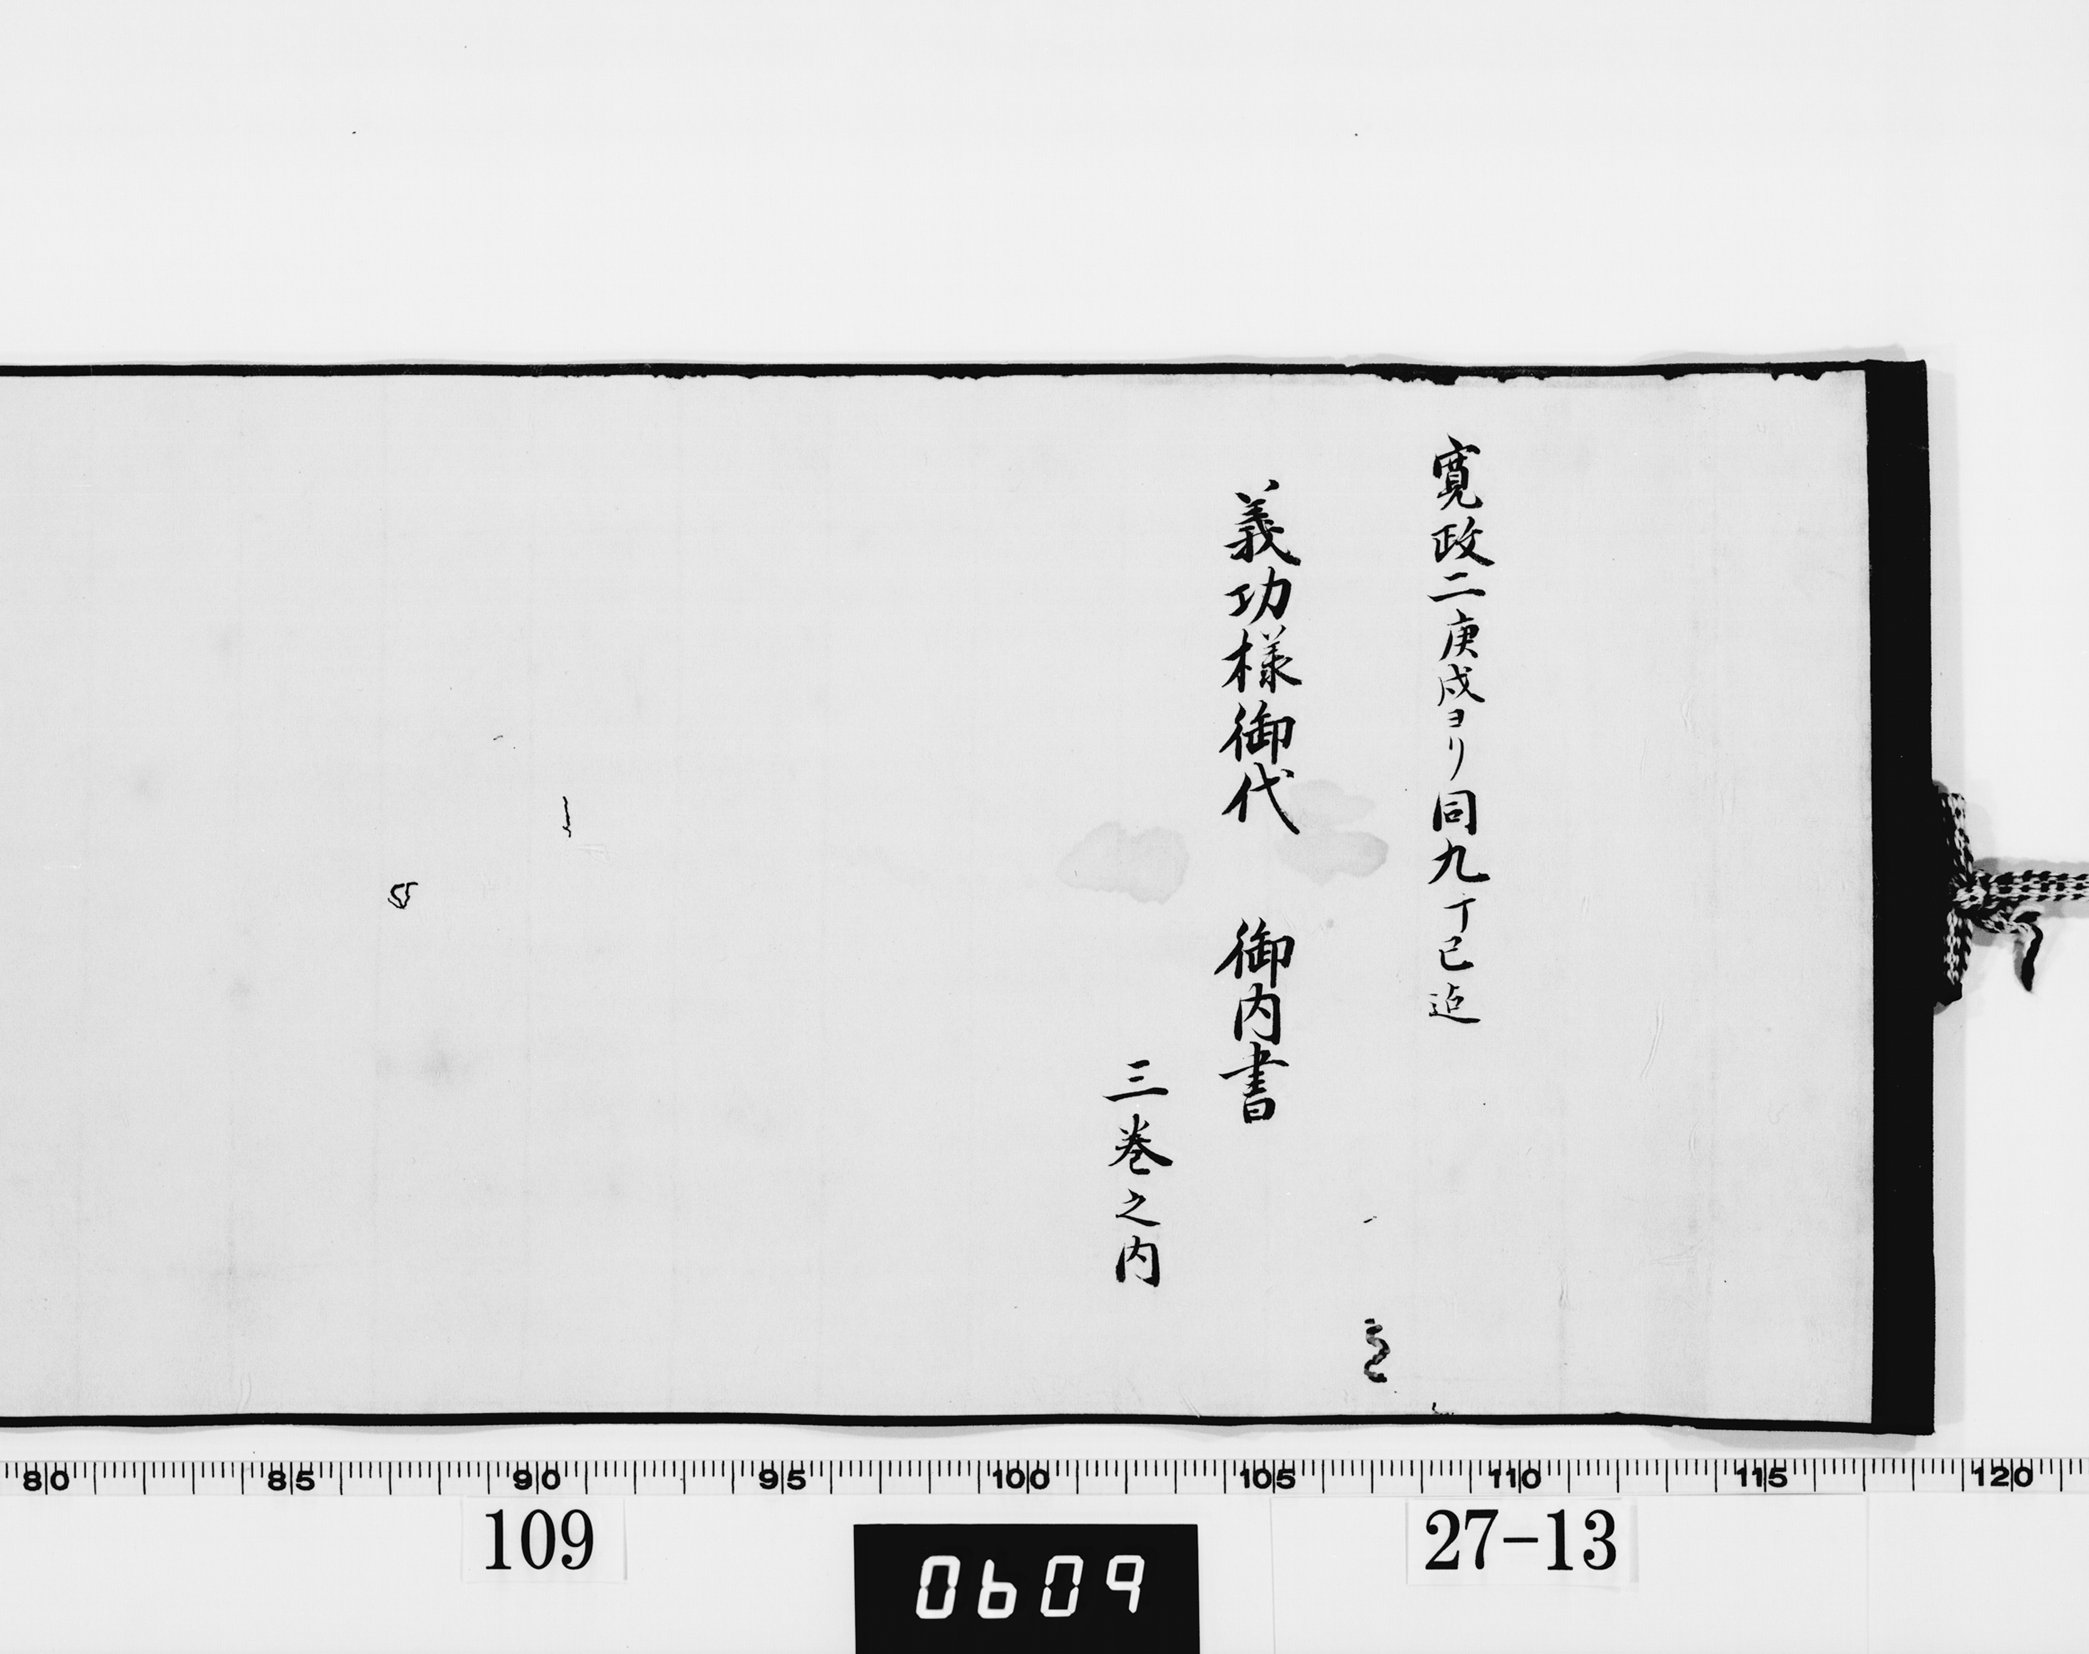 寛政二庚戌ヨリ同九丁巳迠
義功様御代　御内書
三巻之内
80 85 90 95 100 105 110 115 120
109
0609
27-13